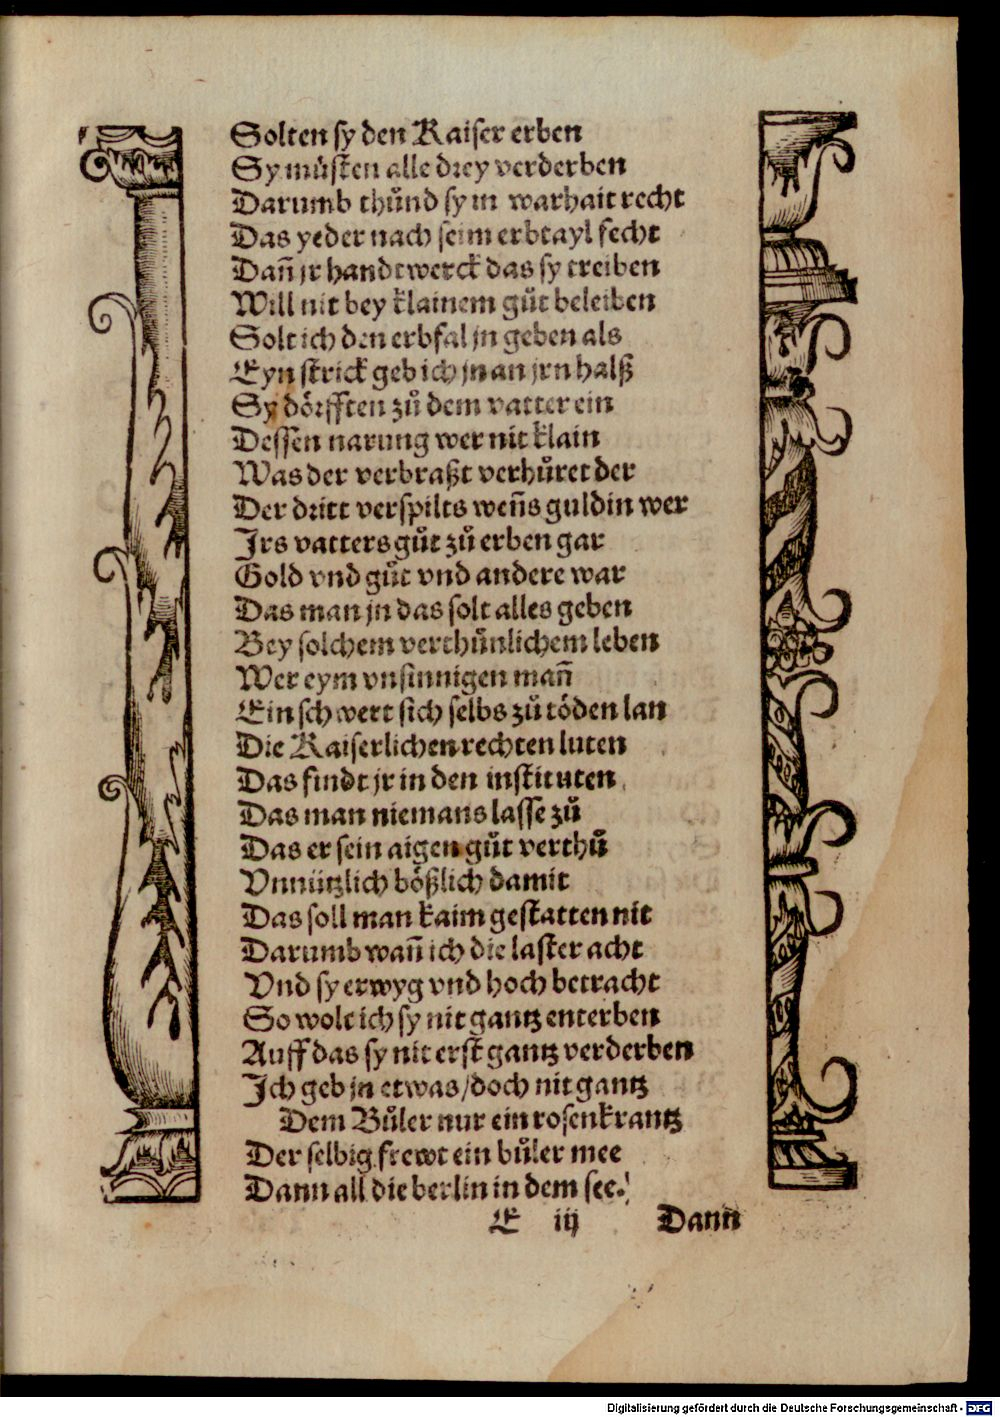 Solten sy den Kaiser erben
Sy müsten alle drey verderben
Darumb thůnd sy in warhait recht
Das yeder nach seim erbtayl fecht
Dañ jr handtwerck das sy treiben
Will nit bey klainem gůt beleiben
Solt ich den erbfal jn geben als
Eyn strick geb ich jn an jrn halß
Sy dörfften zů dem vatter ein
Dessen narung wer nit klain
Was der verbraßt verhůret der
Der dritt verspilts weñs guldin wer
Jrs vatters gůt zů erben gar
Gold vnd gůt vnd andere war
Das man jn das solt alles geben
Bey solchem verthůnlichem leben
Wer eym vnsinnigen mañ
Ein schwert sich selbs zů töden lan
Die Kaiserlichen rechten luten
Das findt jr in den instituten
Das man niemans lasse zů
Das er sein aigen gůt verthů
Vnnützlich bößlich damit
Das soll man kaim gestatten nit
Darumb wañ ich die laster acht
Vnd sy erwyg vnd hoch betracht
So wolt ich sy nit gantz enterben
Auff das sy nit erst gantz verderben
Jch geb jn etwas/doch nit gantz
Dem Bůler nur ein rosenkrantz
Der selbig frewt ein bůler mee
Dann all die berlin in dem see.
E iij Dann
Digitalisierung gefördert durch die Deutsche Forschungsgemeinschaft - DFG